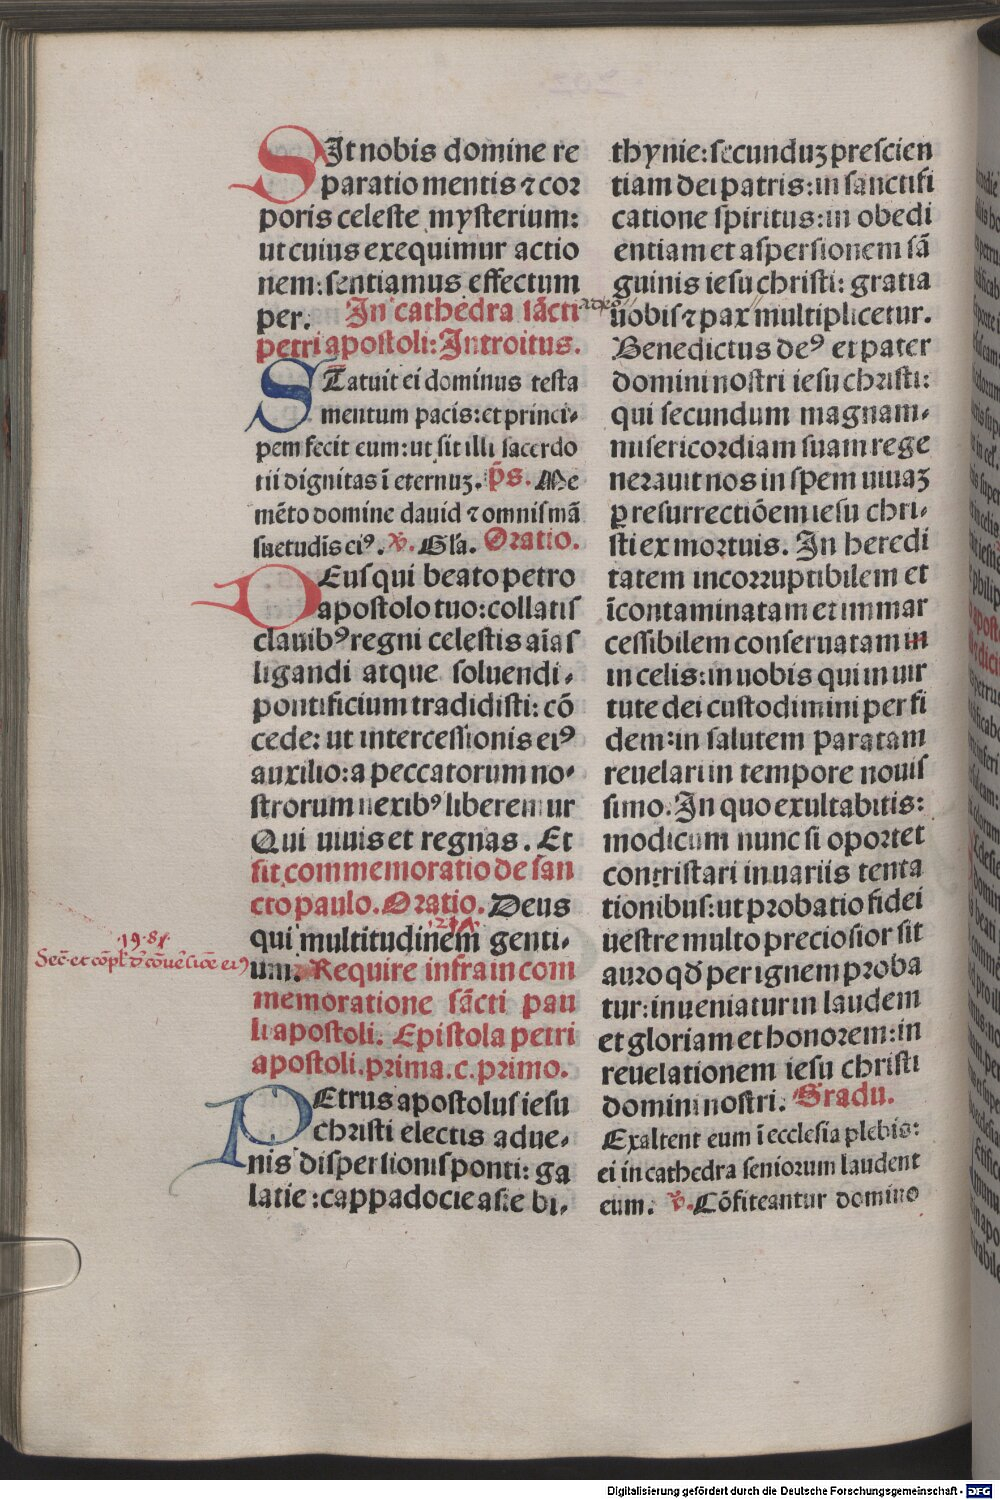 SIt nobis domine re
paratio mentis ⁊ coꝛ
poris celeste mysterium:
ut cuius exequimur actio
nem: sentiamus effectum
per. In cathedra sācti
petri apostoli: Introitus.
STatuit ei dominus testa
mentum pacis: et princi-
pem fecit eum: ut sit illi sacerdo
tii dignitas ī eternuꝫ. p̄s. Me
mēto domine dauid ⁊ omnis mā
suetudīs eiꝰ. ℣. Gl'a. Oratio.
DEus qui beato petro
apostolo tuo: collatis
clauibꝰ regni celestis aīas
ligandi atque soluendi-
pontificium tradidisti: cō
cede: ut intercessionis eiꝰ
auxilio: a peccatorum no-
strorum nexibꝰ liberemur
Qui uiuis et regnas. Et
fit commemoratio de san
cto paulo. Oratio. Deus
qui multitudinem genti-
um. Require infra in com
memoratione sācti pau
li apostoli. Epistola petri
apostoli. prima. c. primo.
PEtrus apostolus iesu
christi electis adue-
nis dispersionis ponti: ga
latie: cappadocie asie bi-
thynie: secunduꝫ prescien
tiam dei patris: in sanctifi
catione spiritus: in obedi
entiam et aspersionem sā
guinis iesu christi: gratia
uobis ⁊ pax multiplicetur.
Benedictus deꝰ et pater
domini nostri iesu christi:
qui secundum magnam-
misericordiam suam rege
nerauit nos in spem uiuaꝫ
ꝑ resurrectiōem iesu chri-
sti ex mortuis. In heredi
tatem incoꝛruptibilem et
īcontaminatam et inmar
cessibilem conseruatam in
in celis: in uobis qui in uir
tute dei custodimini per fi
dem: in salutem paratam
reuelari in tempore nouis
simo. In quo exultabitis:
modicum nunc si oportet
contristari in uariis tenta
tionibus: ut probatio fidei
uestre multo preciosior sit
auro qđ per ignem proba
tur: inueniatur in laudem
et gloriam et honorem: in
reuelationem iesu christi
domini nostri. Gradu.
Exaltent eum ī ecclesia plebis:
ei in cathedra senioꝛum laudent
eum. ℣. Cōfiteantur domino
Digitalisierung gefördert durch die Deutsche Forschungsgemeinschaft - DFG